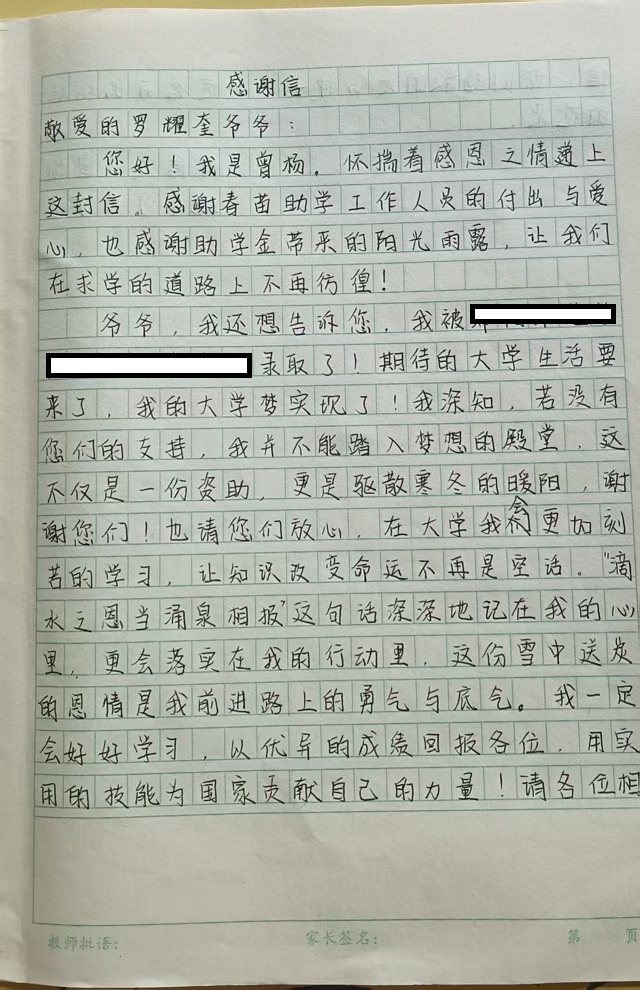 感谢信
敬爱的罗耀奎爷爷：
您好！我是曾杨，怀揣着感恩之情递上
这封信。感谢春苗助学工作人员的付出与爱
心，也感谢助学金带来的阳光雨露，让我们
在求学的道路上不再彷徨！
爷爷，我还想告诉您，我被
录取了！期待的大学生活要
来了，我的大学梦实现了！我深知，若没有
您们的支持，我并不能踏入梦想的殿堂，这
不仅是一份资助，更是驱散寒冬的暖阳，谢
谢您们！也请您们放心，在大学我会更加刻
苦的学习，让知识改变命运不再是空话．“滴
水之恩当涌泉相报”这句话深深地记在我的心
里，更会落实在我的行动里，这份雪中送炭
的恩情是我前进路上的勇气与底气。我一定
会好好学习，以优异的成绩回报各位，用实
用的技能为国家贡献自己的力量！请各位相
教师批语：　家长签名：　第　页